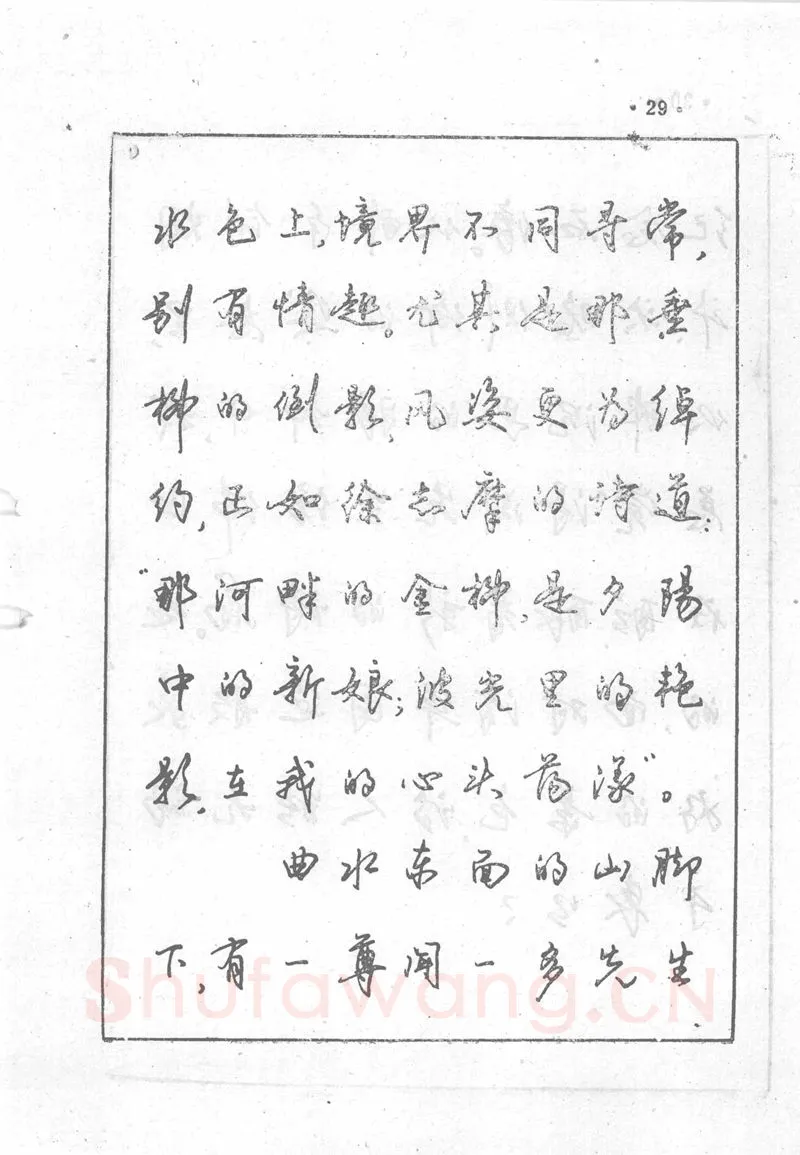 ·29·
水色上,境界不同寻常,
别有情趣。尤其是那垂
柳的倒影,风姿更为绰
约,正如徐志摩的诗道:
“那河畔的金柳,是夕陽
中的新娘;波光里的艳
影,在我的心头荡漾”。
曲水东面的山脚
下,有一尊闻一多先生
Shufawang.CN